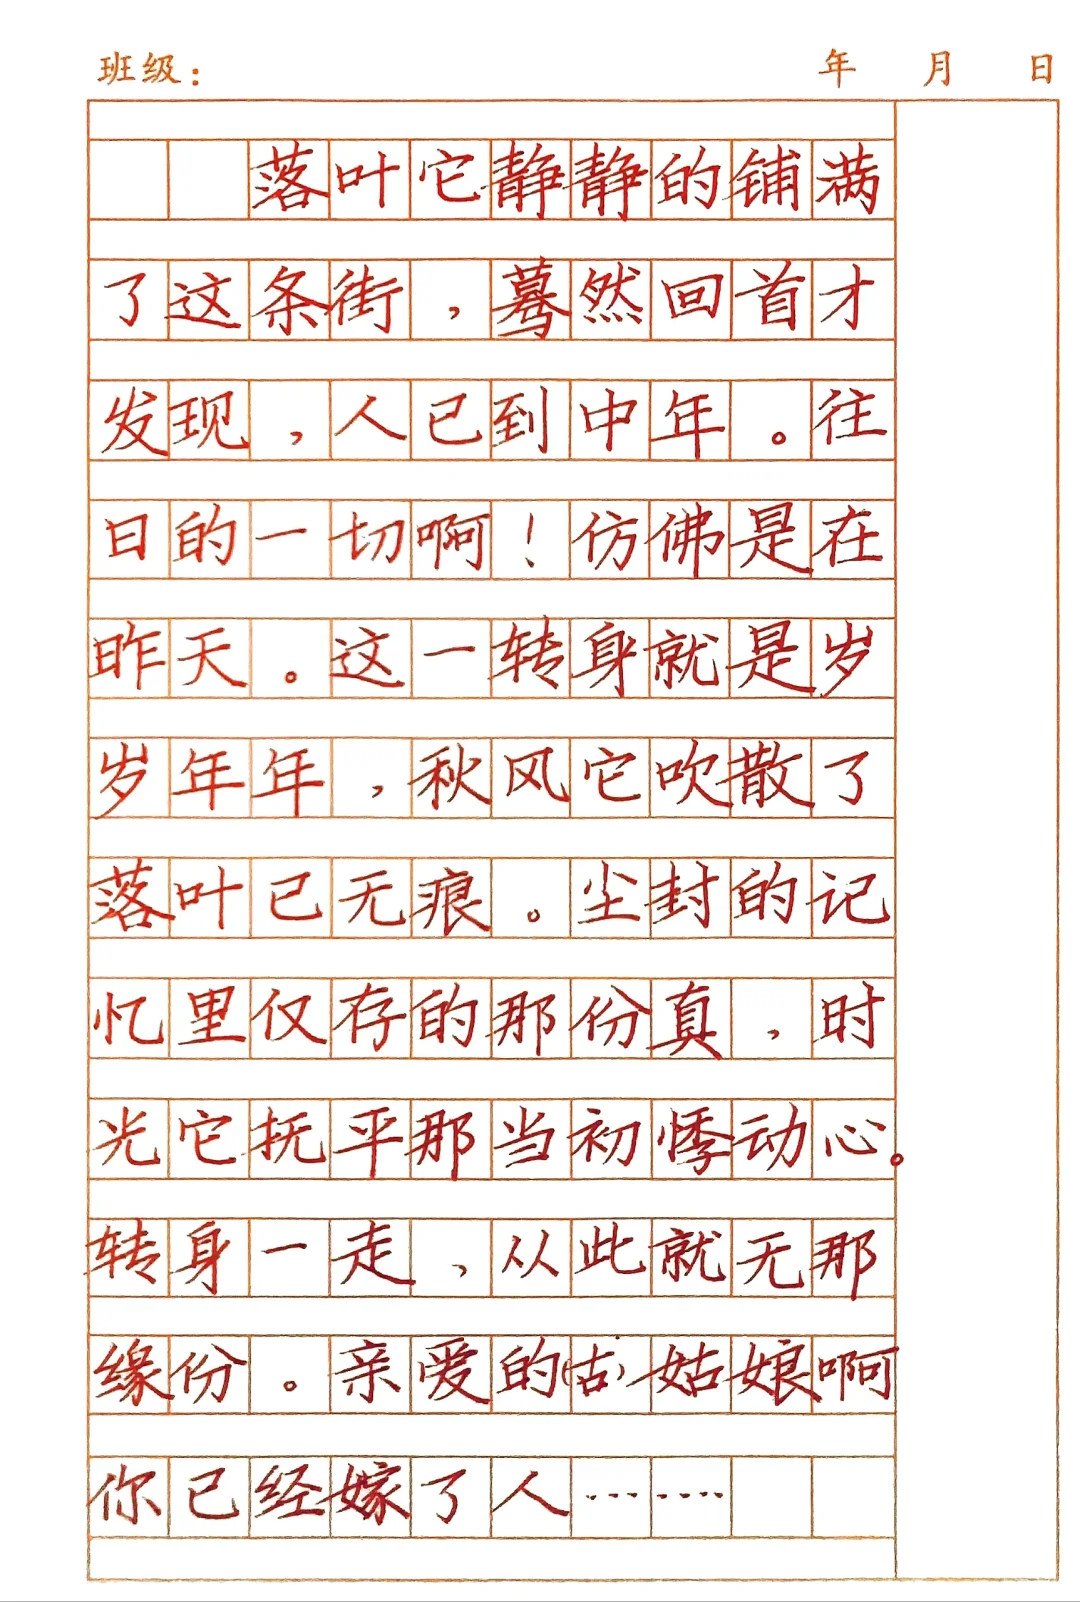 班级： 年 月 日
落叶它静静的铺满
了这条街，蓦然回首才
发现，人已到中年。往
日的一切啊！仿佛是在
昨天。这一转身就是岁
岁年年，秋风它吹散了
落叶已无痕。尘封的记
忆里仅存的那份真，时
光它抚平那当初悸动心。
转身一走，从此就无那
缘份。亲爱的(古)姑娘啊
你已经嫁了人……